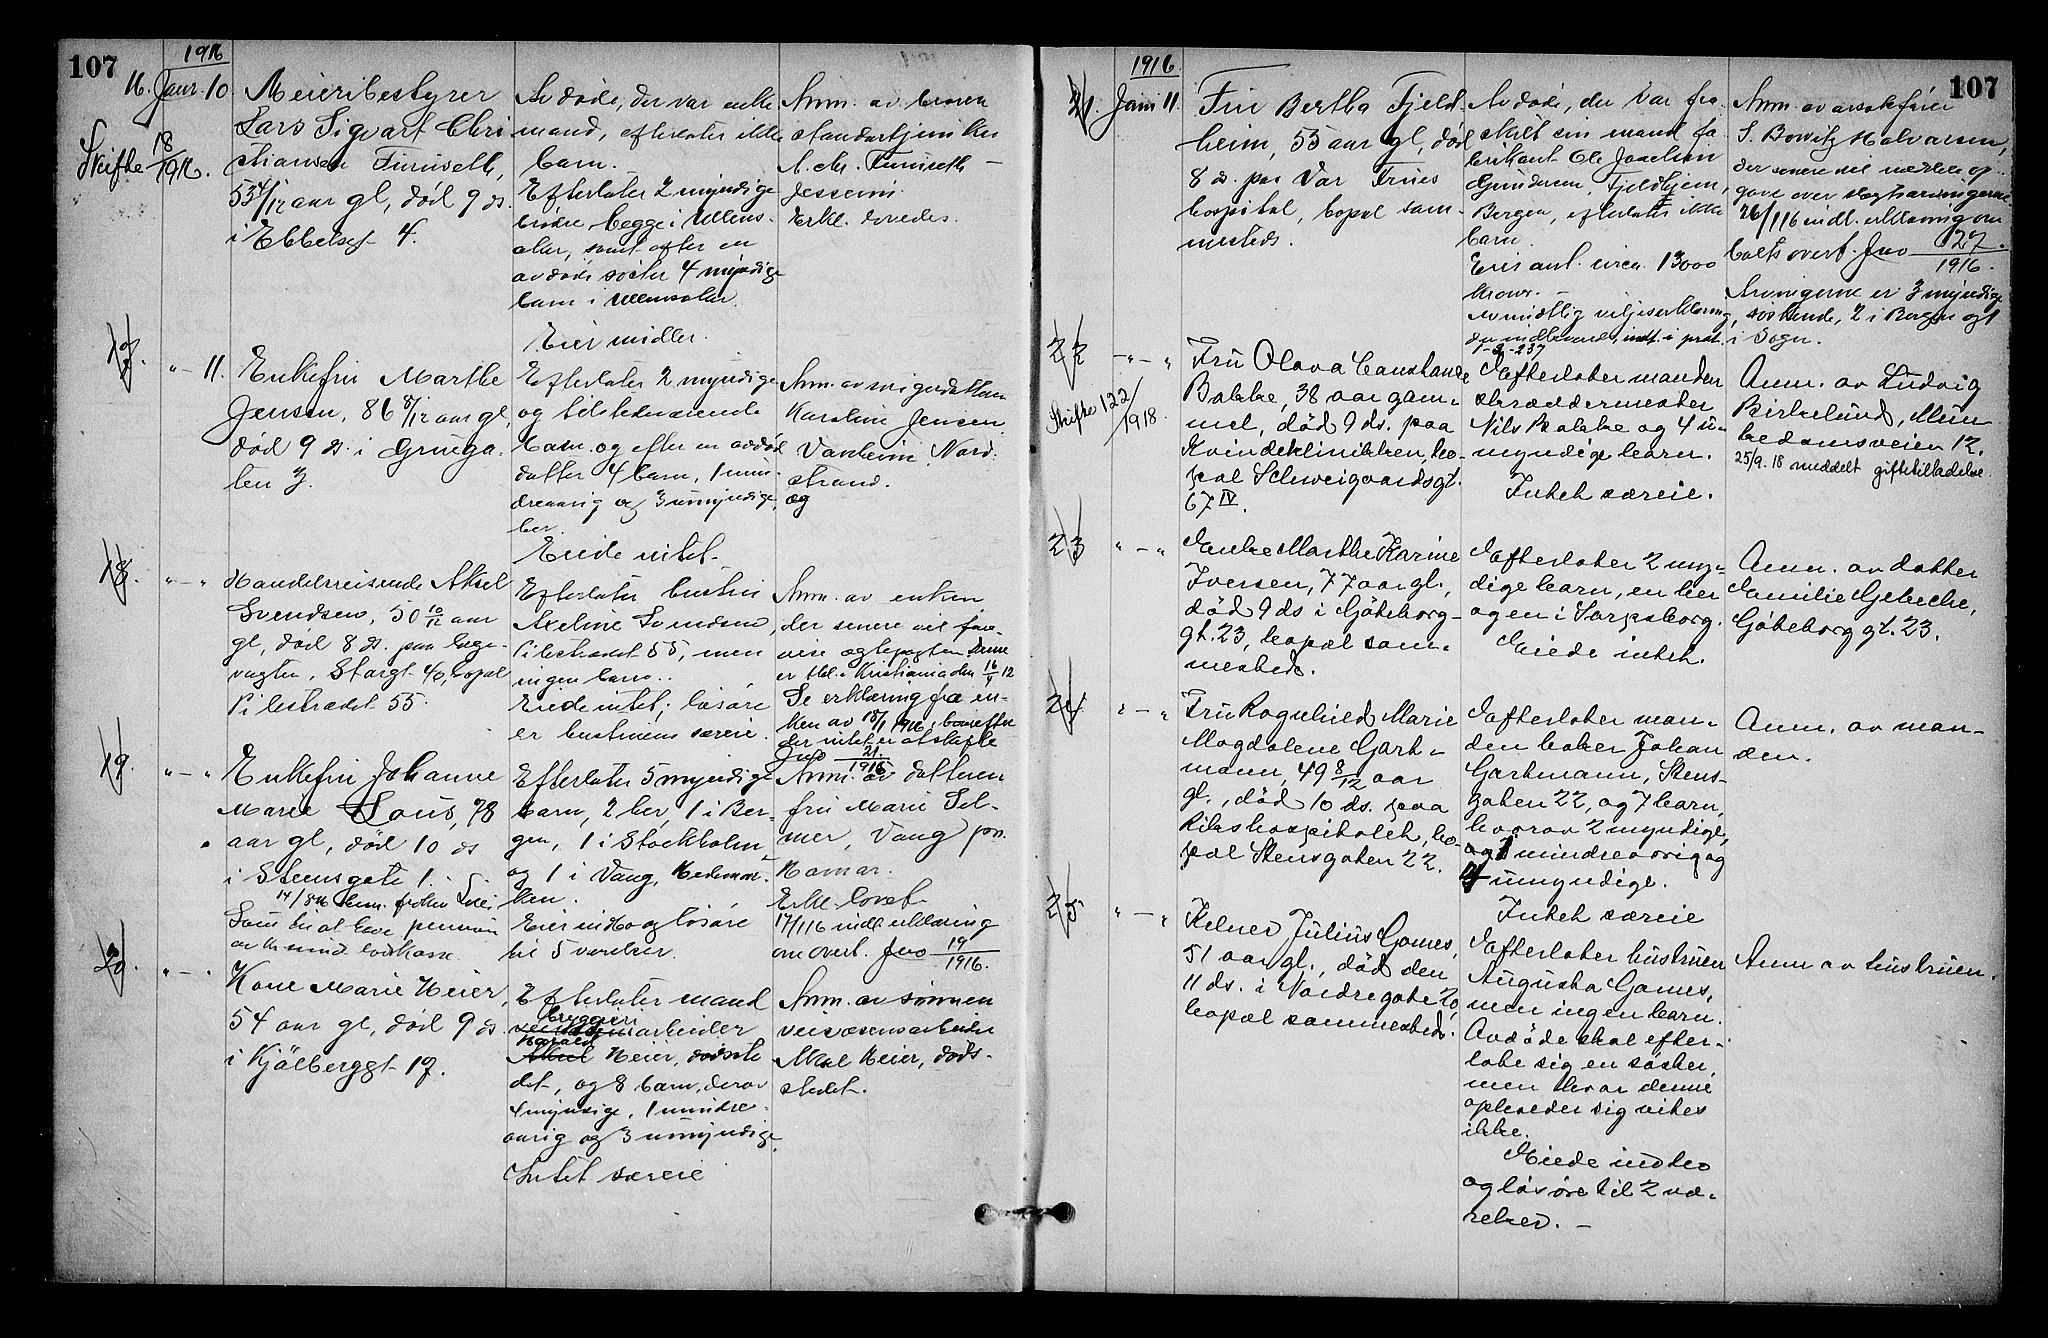 107
1916
16. Janr. 10
Skifte 18/1916.
Meieribestyrer
Lars Sigvart Chri
stiansen Furuseth,
53 4/12 aar gl, död 9 ds.
i Ebbelsgt 4.
Avdöde, der var enke
mand, efterlater ikke
barn.
Efterlater 2 myndige
brödre begge i Ullens-
aker, samt efter en
avdöd söster 4 myndige
barn i Ullensaker.
Eier midler.
Anm. av broren
A. Chr. Furuseth
Jessheim.
Erkl. lovedes.
17. " - 11.
Enkefru Marthe
Jensen, 86 8/12 aar gl,
död 9 ds. i Grünga-
ten 3.
Efterlater 2 myndige
og tilstedeværende
barn og efter en avdöd
datter 4 barn, 1 min-
dreaarig og 3 umyndige,
her.
Eiede intet.
Anm. av svigerdatteren
Karoline Jensen,
Nord-
strand.
og
18. " - "
Handelsreisende Aksel
Svendsen, 50 10/12 aar
gl, död 8 ds. paa Læge-
vagten, Storgt. 40, bopæl
Pilestrædet 55.
Efterlater hustru
Axeline Svendsen,
Pilestrædet 55, men
ingen barn.
Eiede intet; lösöre
er hustruens særeie.
Anm. av enken
der senere vil fore-
vise egtepagten. Denne
er tbl. i Kristiania den 16/1 12
Se erklæring fra en-
ken av 18/1 1916, hvorefter
der intet er at skifte
Jno 21./1916
19. " - "
Enkefru Johanne
Marie Sous, 78
aar gl, död 10 ds
i Stensgate 1.
Efterlater 5 myndige
barn, 2 her, 1 i Ber-
gen, 1 i Stockholm
og 1 i Vang, Hedemar-
ken.
Eier indbo og lösöre
til 5 værelser.
Anm. av datteren
fru Marie Sel-
mer, Vang pr.
Hamar.
Erkl. lovet.
17/1 16 indl. erklæring
om overt. Jno 19/1916.
20. " - "
Kone Marie Heier,
54 aar gl, död 9 ds.
i Kjölberggt 19.
Efterlater mand
bryggeri
arbeider
Harald
Heier, dödste
det, og 8 barn, derav
4 myndige, 1 mindre-
aarig og 3 umyndige.
Intet særeie
Anm. av sönnen
veivæsensarbeider
Aksel Heier, döds-
stedet.
107
1916
21. Janr 11.
Fru Bertha Fjeld-
heim, 55 aar gl, död
8 ds. paa Vor Frues
hospital, bopæl sam-
mesteds.
Avdöde, der var fra-
skilt sin mand fa-
brikant Ole Joachim
Fjeldheim,
Bergen, efterlater ikke
barn.
Eies ant. circa 13000
kroner. -
Av mundtlig viljeserklæring,
indt. i prot.
1-2-237
Anm. av orsakförer
S. Bowitz Halvorsen,
der senere vil meddele op-
gave over slegtsarvingerne
26/1 16 indl. erklæring om
boets overt. Jno 27./1916.
Arvingerne er 3 myndige
söskende, 2 i Bergen og 1
i Sogn.
22 - " - "
Skifte 122/1918.
Fru Olava Constance
Bakke, 38 aar gam-
mel, död 9 ds. paa
Kvindeklinikken, bo-
pæl Schweigaardsgt.
67 IV.
Efterlater manden
skræddermester
Nils Bakke og 4 u-
myndige barn.
Intet særeie.
Anm. av Ludvig
Birkelund, Mun-
kedamsveien 12.
25/9. 18 meddelt giftetilladelse.
23 " - "
Enke Marthe Karine
Iversen, 77 aar gl.,
död 9 ds i Göteborg-
gt. 23, bopæl sam-
mesteds.
Efterlater 2 myn-
dige barn, en her
og en i Sarpsborg.
Eiede intet.
Anm. av datter
Emilie
Göteborggt. 23.
24 " - "
Fru Ragnhild Marie
Magdalene Gart-
mann, 49 8/12 aar
gl., död 10 ds. paa
Rikshospitalet, bo-
pæl Stensgaten 22.
Efterlater man-
den baker Johan
Gartmann, Stens-
gaten 22, og 7 barn,
hvorav 2 myndige,
og 1 mindreaarig og
4 umyndige.
Intet særeie
Anm. av man-
den.
25 " - "
Kelner Julius Gomes,
51 aar gl., död den
11 ds. i Nordregate 20,
bopæl sammesteds.
Efterlater hustruen
Augusta Gomes,
men ingen barn.
Avdöde skal efter-
late sig en söster,
men hvor denne
opholder sig vites
ikke.
Eiede indbo
og lösöre til 2 væ-
relser. -
Anm av hustruen.